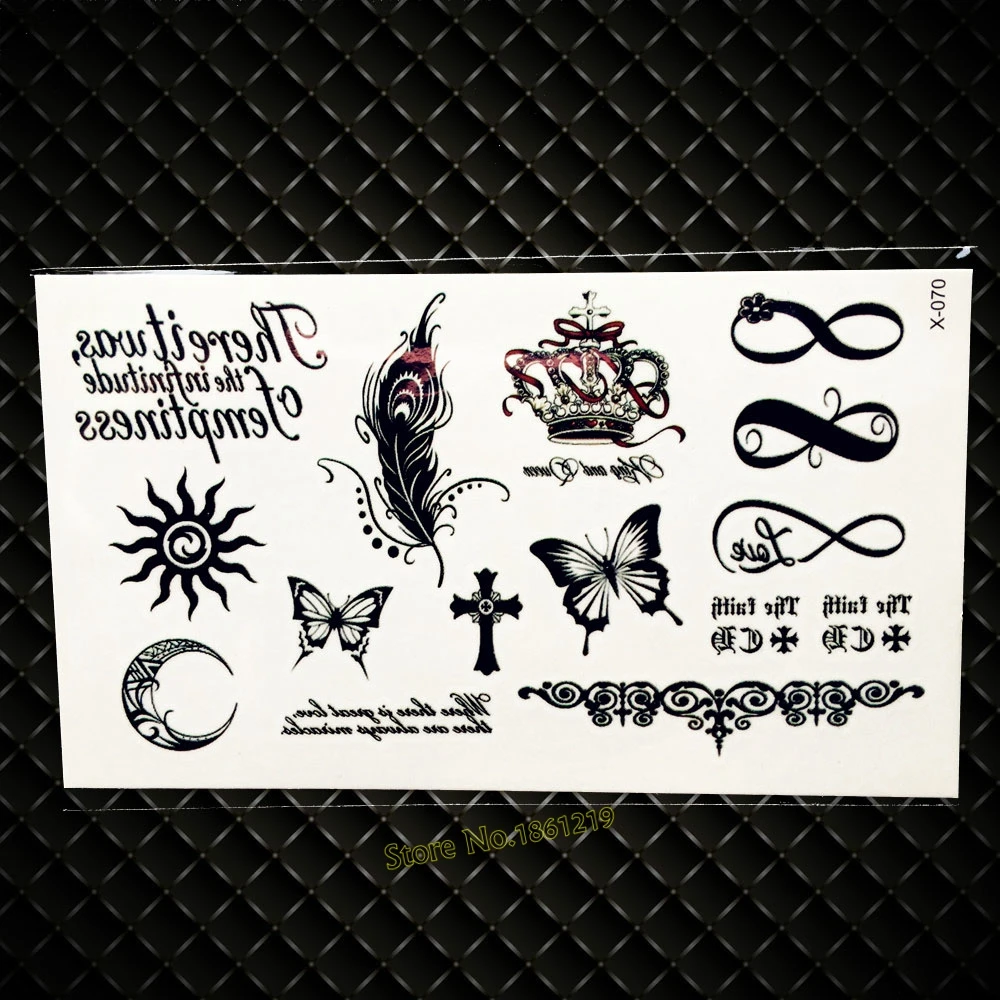 There it was,
the infinitude
of emptiness
King and Queen
X-070
Love
The faith The faith
Where there is great love,
there are always miracles.
Store No.1861219